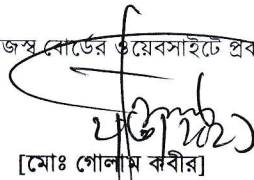 জস্ব বোর্ডের ওয়েবসাইটে প্রব
[মোঃ গোলাম কবীর]